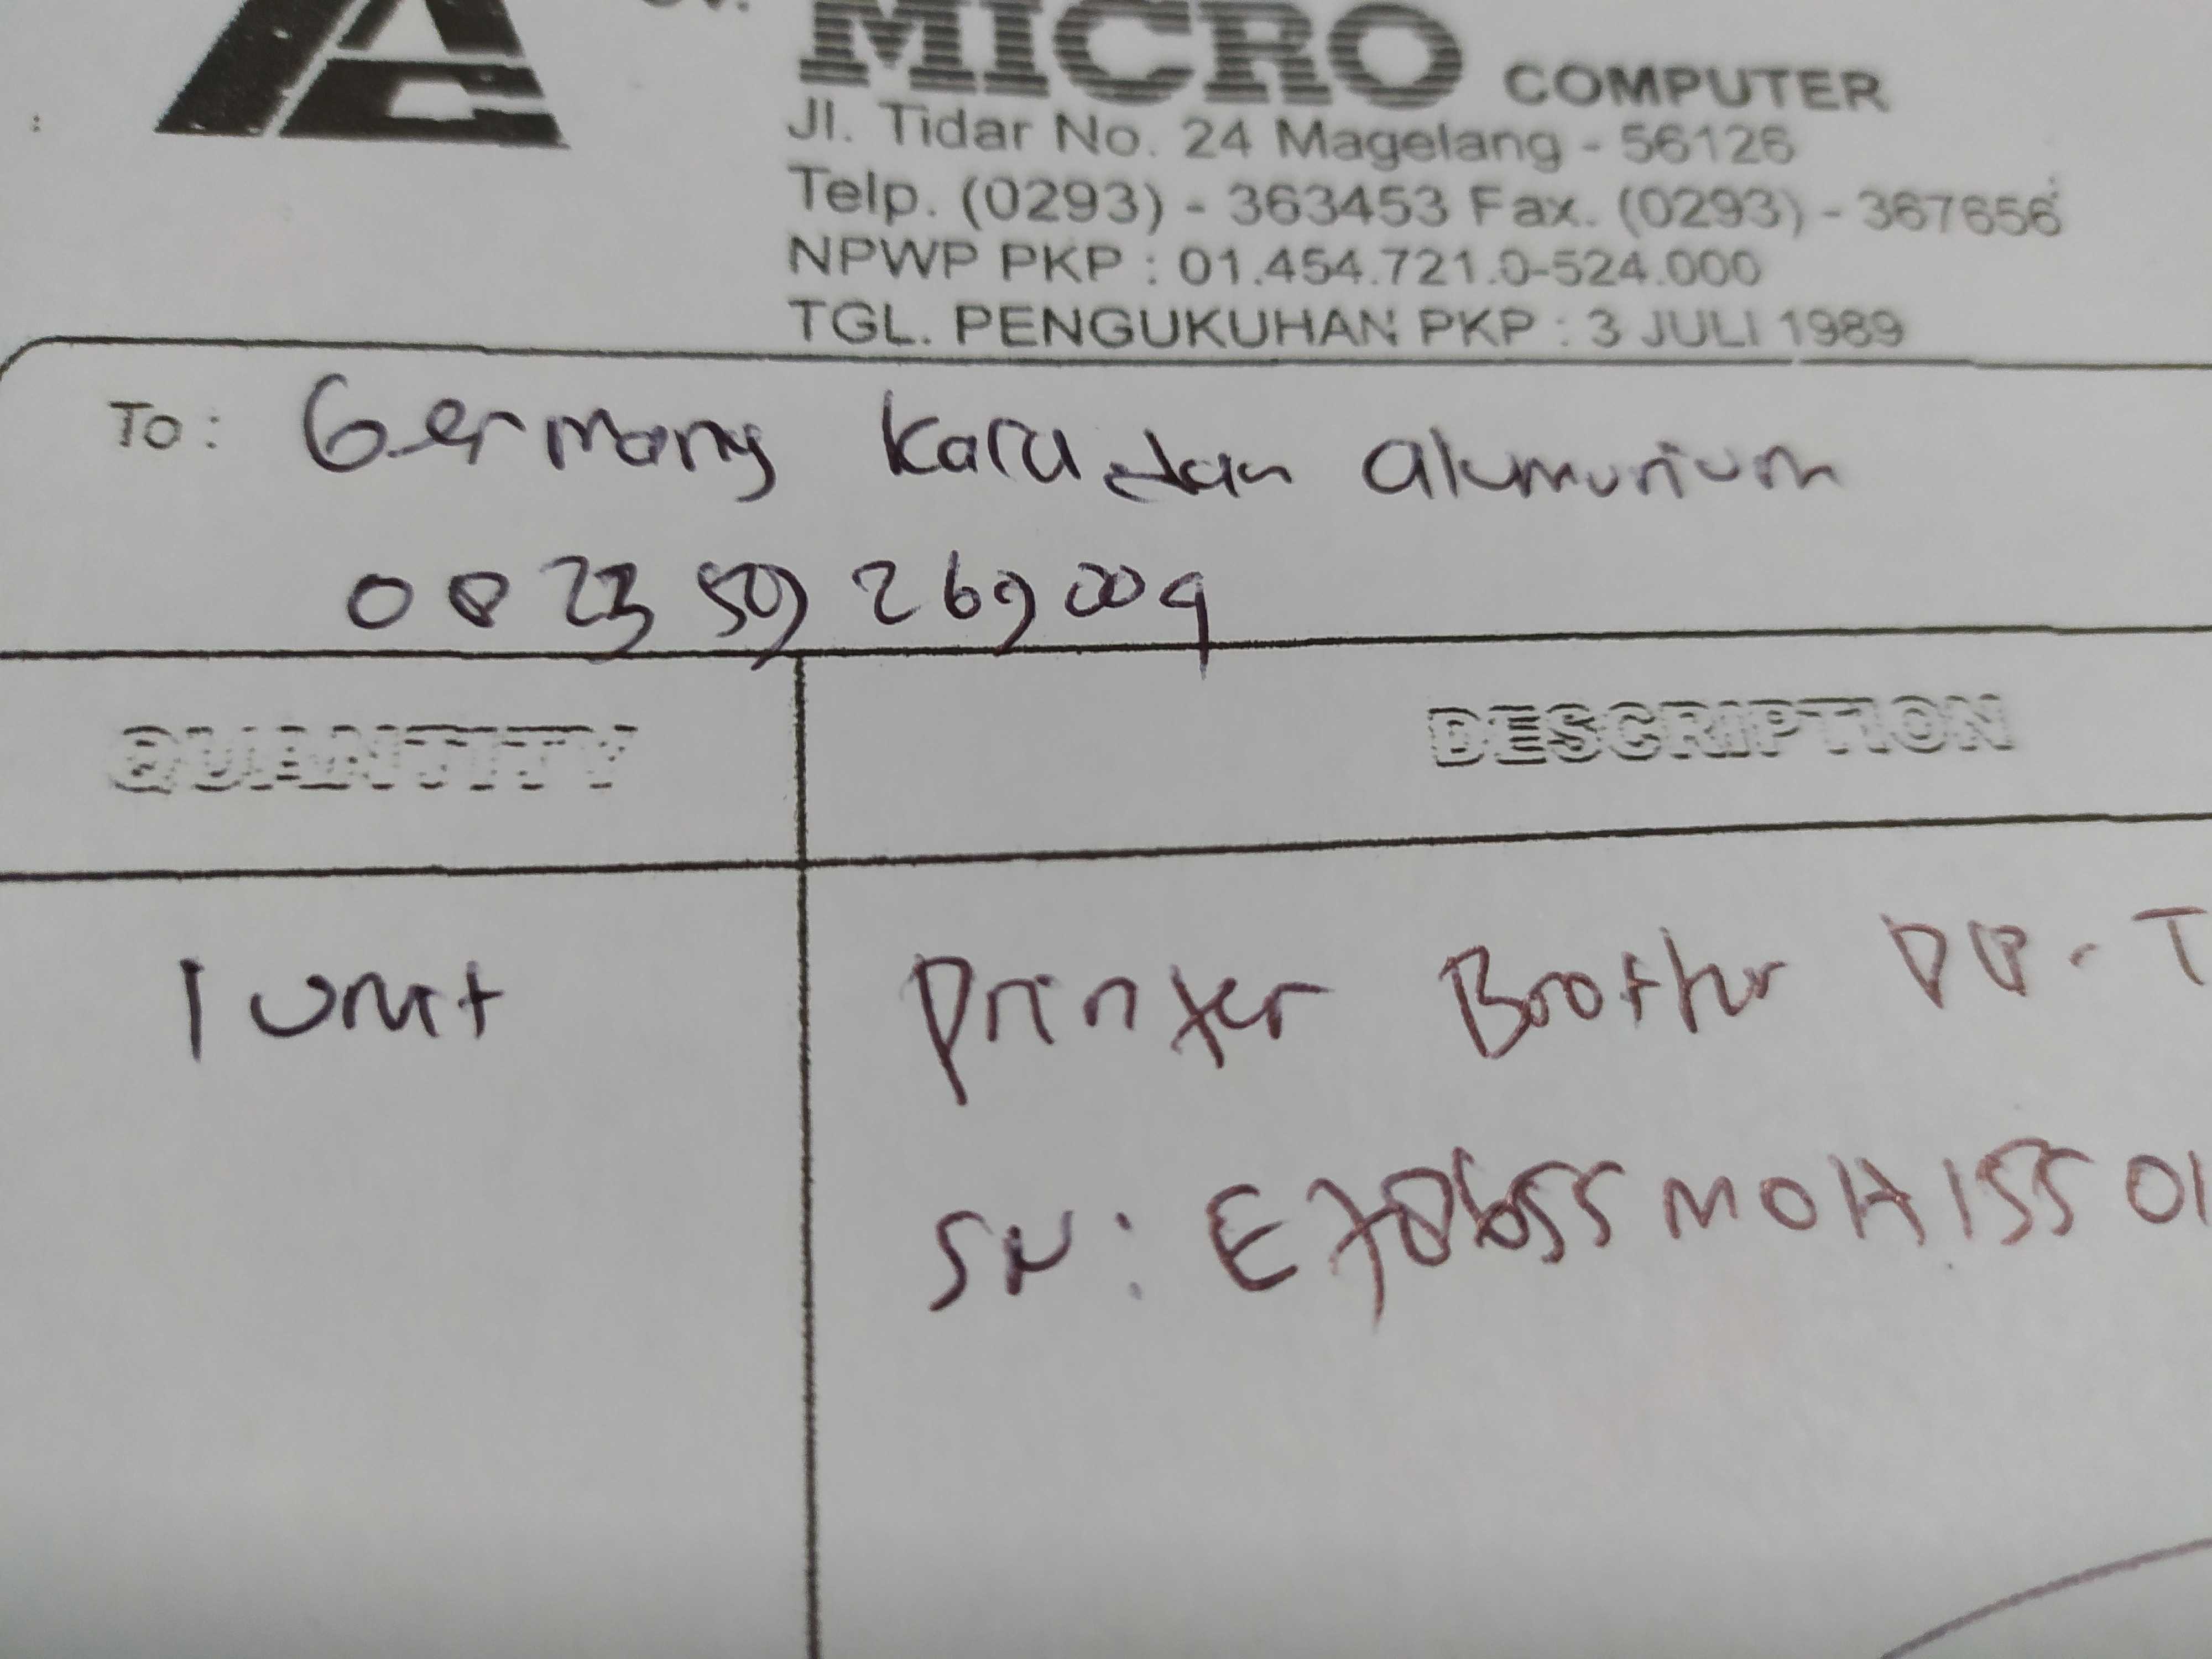 MICRO COMPUTER
Jl. Tidar No. 24 Magelang - 56126
Telp. (0293) - 363453 Fax. (0293) - 367656
NPWP PKP : 01.454.721.0-524.000
TGL. PENGUKUHAN PKP : 3 JULI 1989
To : Germany Kaca dan alumunium
082359269009
QUANTITY DESCRIPTION
1 Unit Printer Brother
SN: